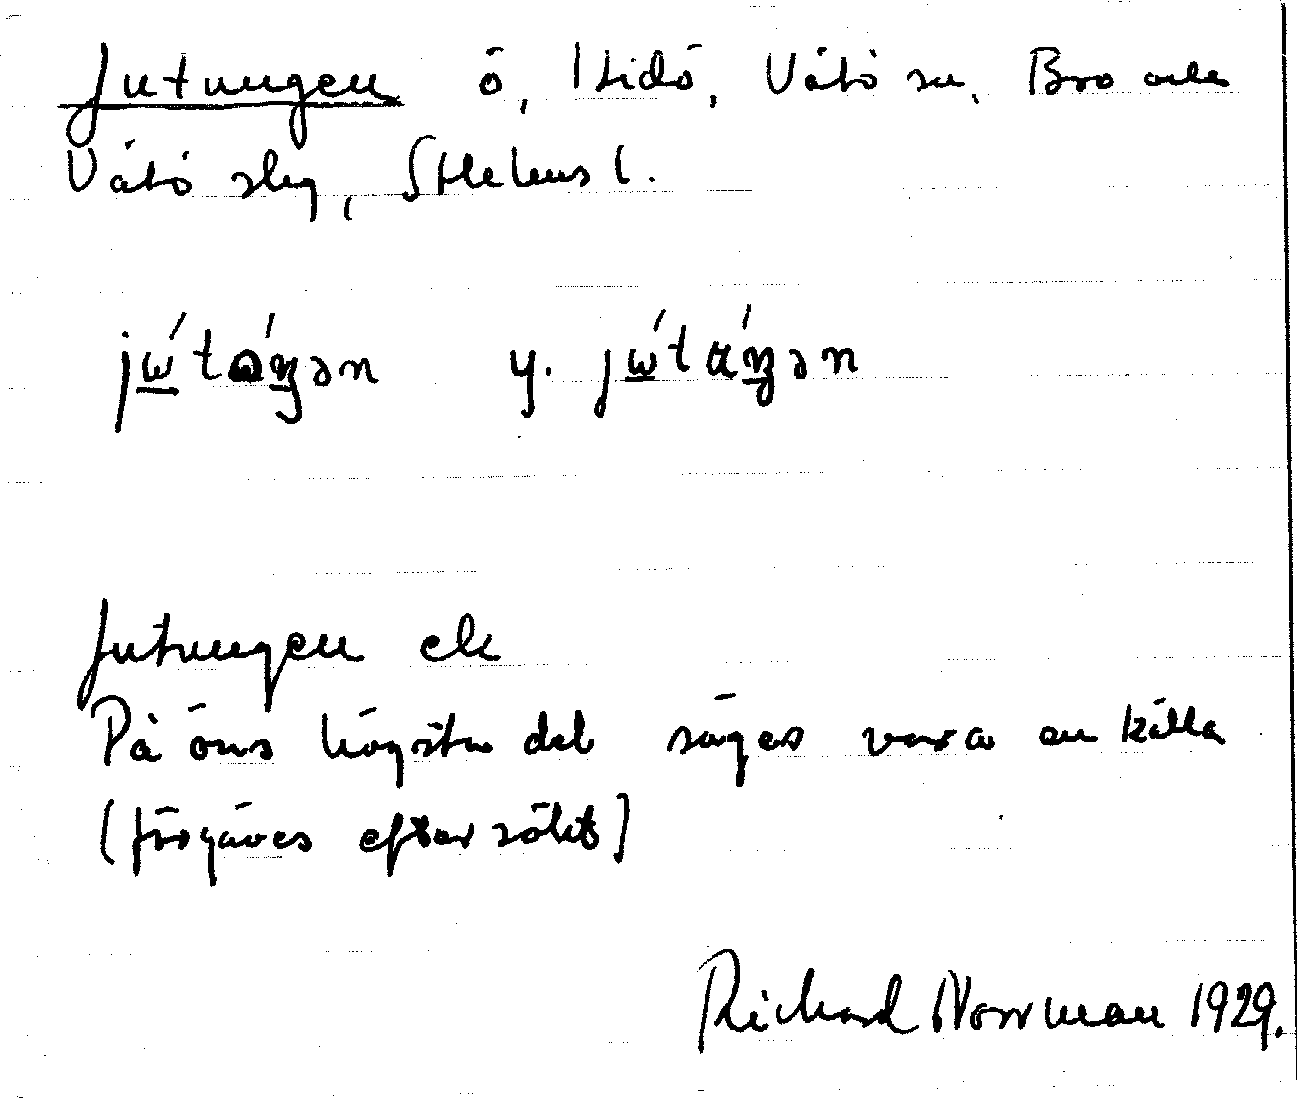 Jutungen ö, Itidö, Vätö sn, Bro och
Vätö slg, Sthlms l.
jώtαŋ́ən y. jώtαŋ́ən
Jutungen ek
På öns högsta del säges vara en källa
(förgäves eftersökt)
Richard Norrman 1929.